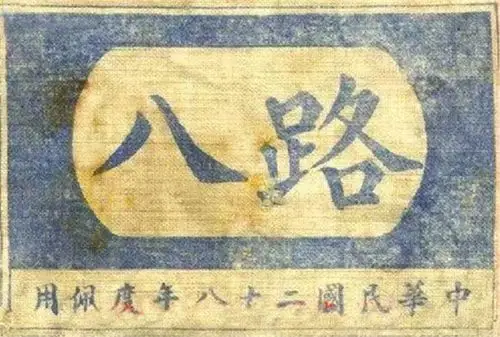 八路
中華民國二十八年度佩用